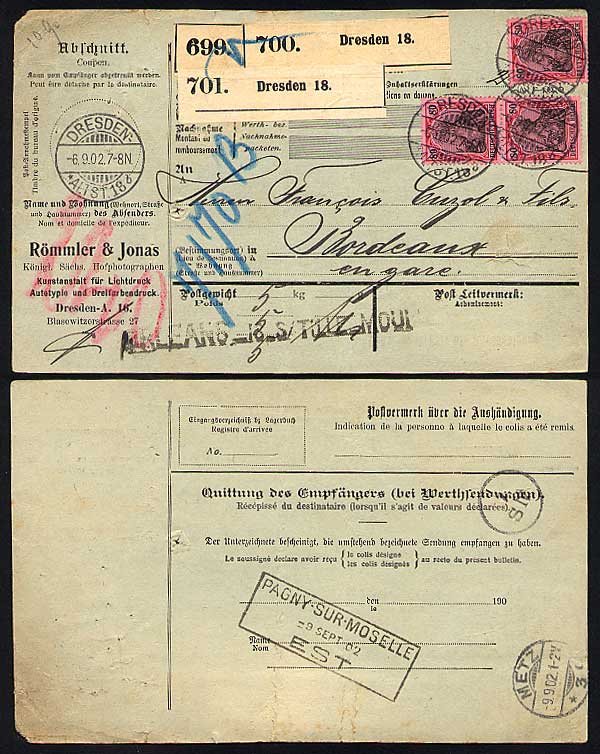 Abschnitt.
Coupon.
Kann vom Empfänger abgetrennt werden.
Peut être détaché par le destinataire.
699.
700. Dresden 18.
701. Dresden 18.
Inhaltserklärungen
Post-Annahmestempel
Timbre du bureau d'origine.
DRESDEN-
-6.9.02.7-8N.
*ALTST.18b
Nachnahme
Montant du
remboursement
Werth- bz.
Nachnahme-
packeten.
An
A
Herrn François Cuzol & Fils
Name und Wohnung (Wohnort, Straße
und Hausnummer) des Absenders.
Nom et domicile de l'expéditeur.
Bordeaux
(Bestimmungsort) in
(lieu de destination) A
Wohnung
(Straße und Hausnummer)
en gare.
Römmler & Jonas
Königl. Sächs. Hofphotographen
Kunstanstalt für Lichtdruck
Autotypie und Dreifarbendruck.
Dresden-A. 16.
Blasewitzerstrasse 27
Postgewicht
Poids
5
kg
5
5
Post Leitvermerk:
Acheminement:
Eingangsverzeichniß bz Lagerbuch
Registre d'arrivée
No.
Postvermerk über die Aushändigung.
Indication de la personne à laquelle le colis a été remis
Quittung des Empfängers (bei Werthsendungen).
Récépissé du destinataire (lorsqu'il s'agit de valeurs déclarées).
Der Unterzeichnete bescheinigt, die umstehend bezeichnete Sendung empfangen zu haben.
Le soussigné déclare avoir reçu le colis désigné / les colis désignés au recto du présent bulletin.
den
le
190
PAGNY-SUR-MOSELLE
-9 SEPT 02
EST
Name
Nom
METZ
9.9.02.1-2N.